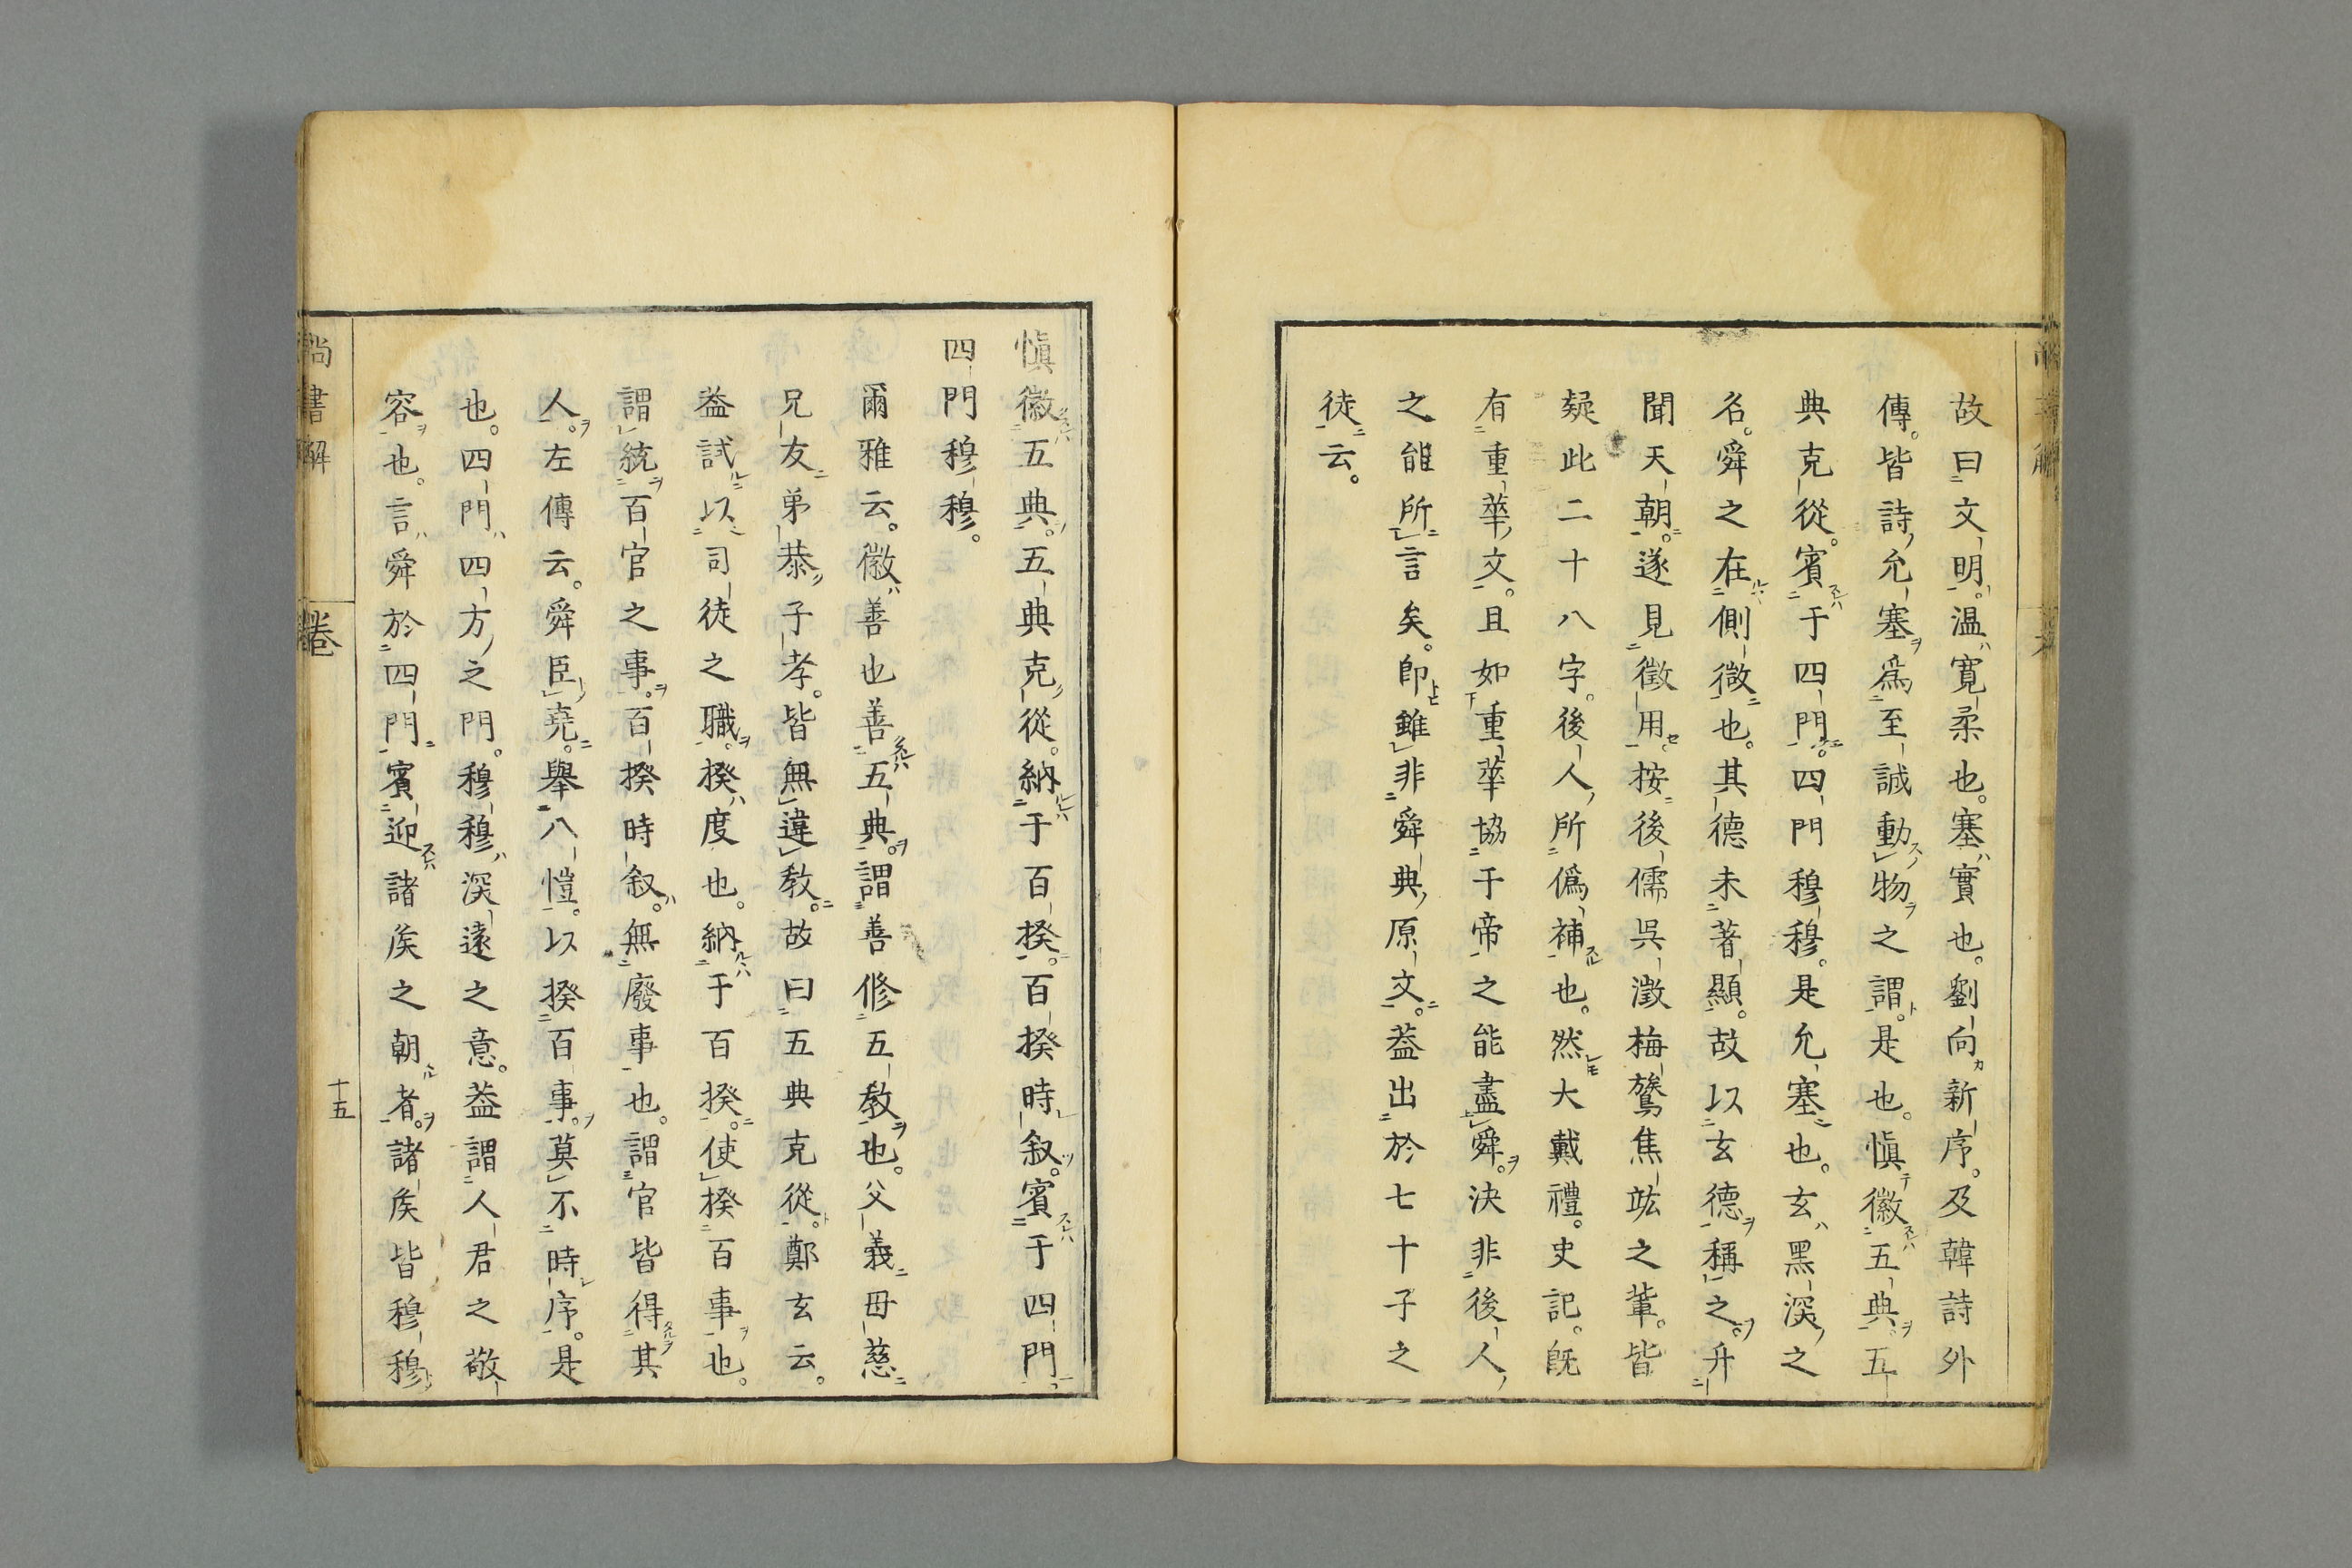 故曰文明。温寬柔也。塞實也。劉向新序。及韓詩外
傳。皆詩允塞爲至誠動物之謂。是也。愼徽五典。五
典克從。賓于四門。四門穆穆。是允塞也。玄黑深之
名。舜之在側微也。其德未著顯。故以玄德稱之。升
聞天朝。遂見徵用。按後儒呉澂梅鷟焦竑之輩。皆
疑此二十八字。後人所僞補也。然大戴禮。史記。既
有重華文。且如重華協于帝之能盡舜。決非後人
之能所言矣。即雖非舜典原文。葢出於七十子之
徒云。
愼徽五典。五典克從。納于百揆。百揆時叙。賓于四門。
四門穆穆。
爾雅云。徽善也善五典。謂善修五教也。父義母慈
兄友弟恭子孝。皆無違教。故曰五典克從。鄭玄云。
葢試以司徒之職。揆度也。納于百揆。使揆百事也。
謂統百官之事。百揆時叙。無廢事也。謂官皆得其
人。左傳云。舜臣堯。舉八愷。以揆百事。莫不時序。是
也。四門四方之門。穆穆深遠之意。葢謂人君之敬
容也。言舜於四門賓迎諸侯之朝者。諸侯皆穆穆
尚書解
卷
十五